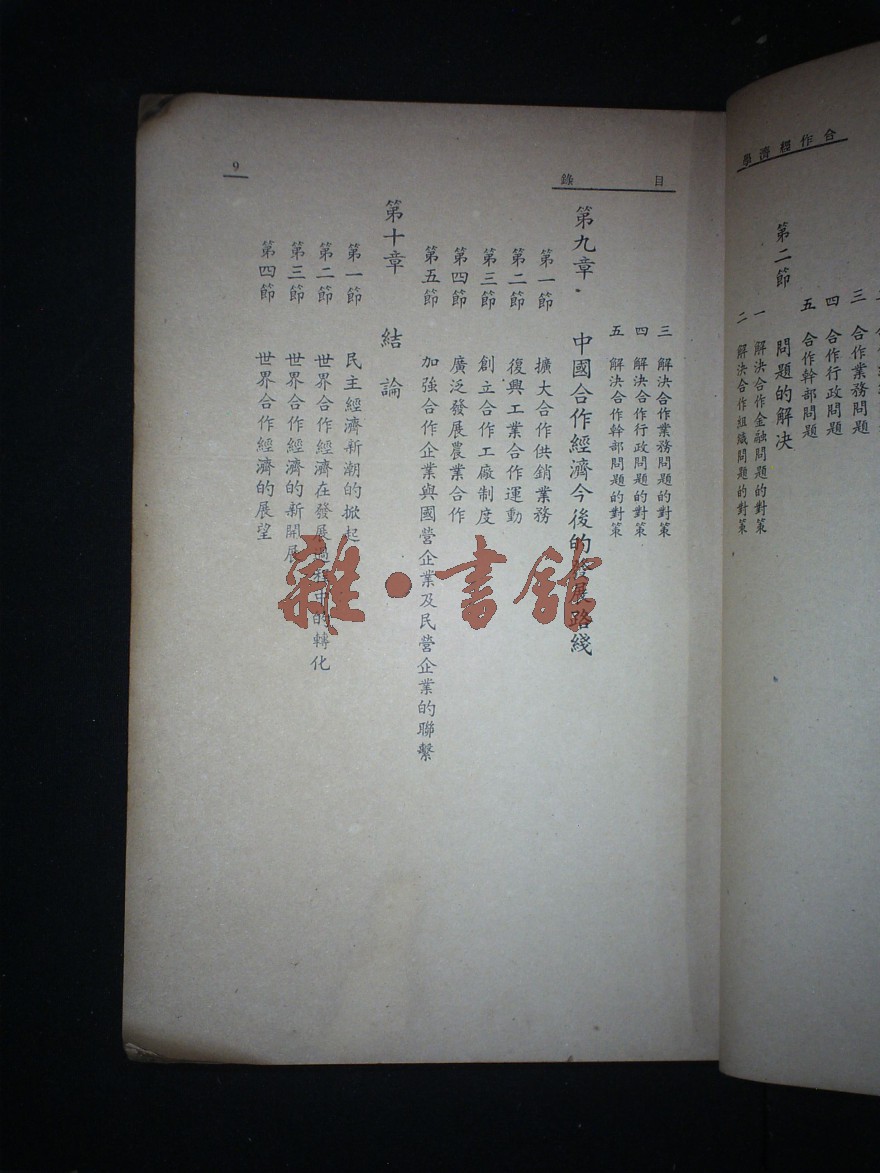 合作經濟學
三 合作業務問題
四 合作行政問題
五 合作幹部問題
第二節 問題的解決
一 解決合作金融問題的對策
二 解決合作組織問題的對策
目錄
三 解決合作業務問題的對策
四 解決合作行政問題的對策
五 解決合作幹部問題的對策
第九章 中國合作經濟今後的發展路綫
第一節 擴大合作供銷業務
第二節 復興工業合作運動
第三節 創立合作工廠制度
第四節 廣泛發展農業合作
第五節 加強合作企業與國營企業及民營企業的聯繫
第十章 結論
第一節 民主經濟新潮的掀起
第二節 世界合作經濟在發展過程中的轉化
第三節 世界合作經濟的新開展
第四節 世界合作經濟的展望
9
雜·書館